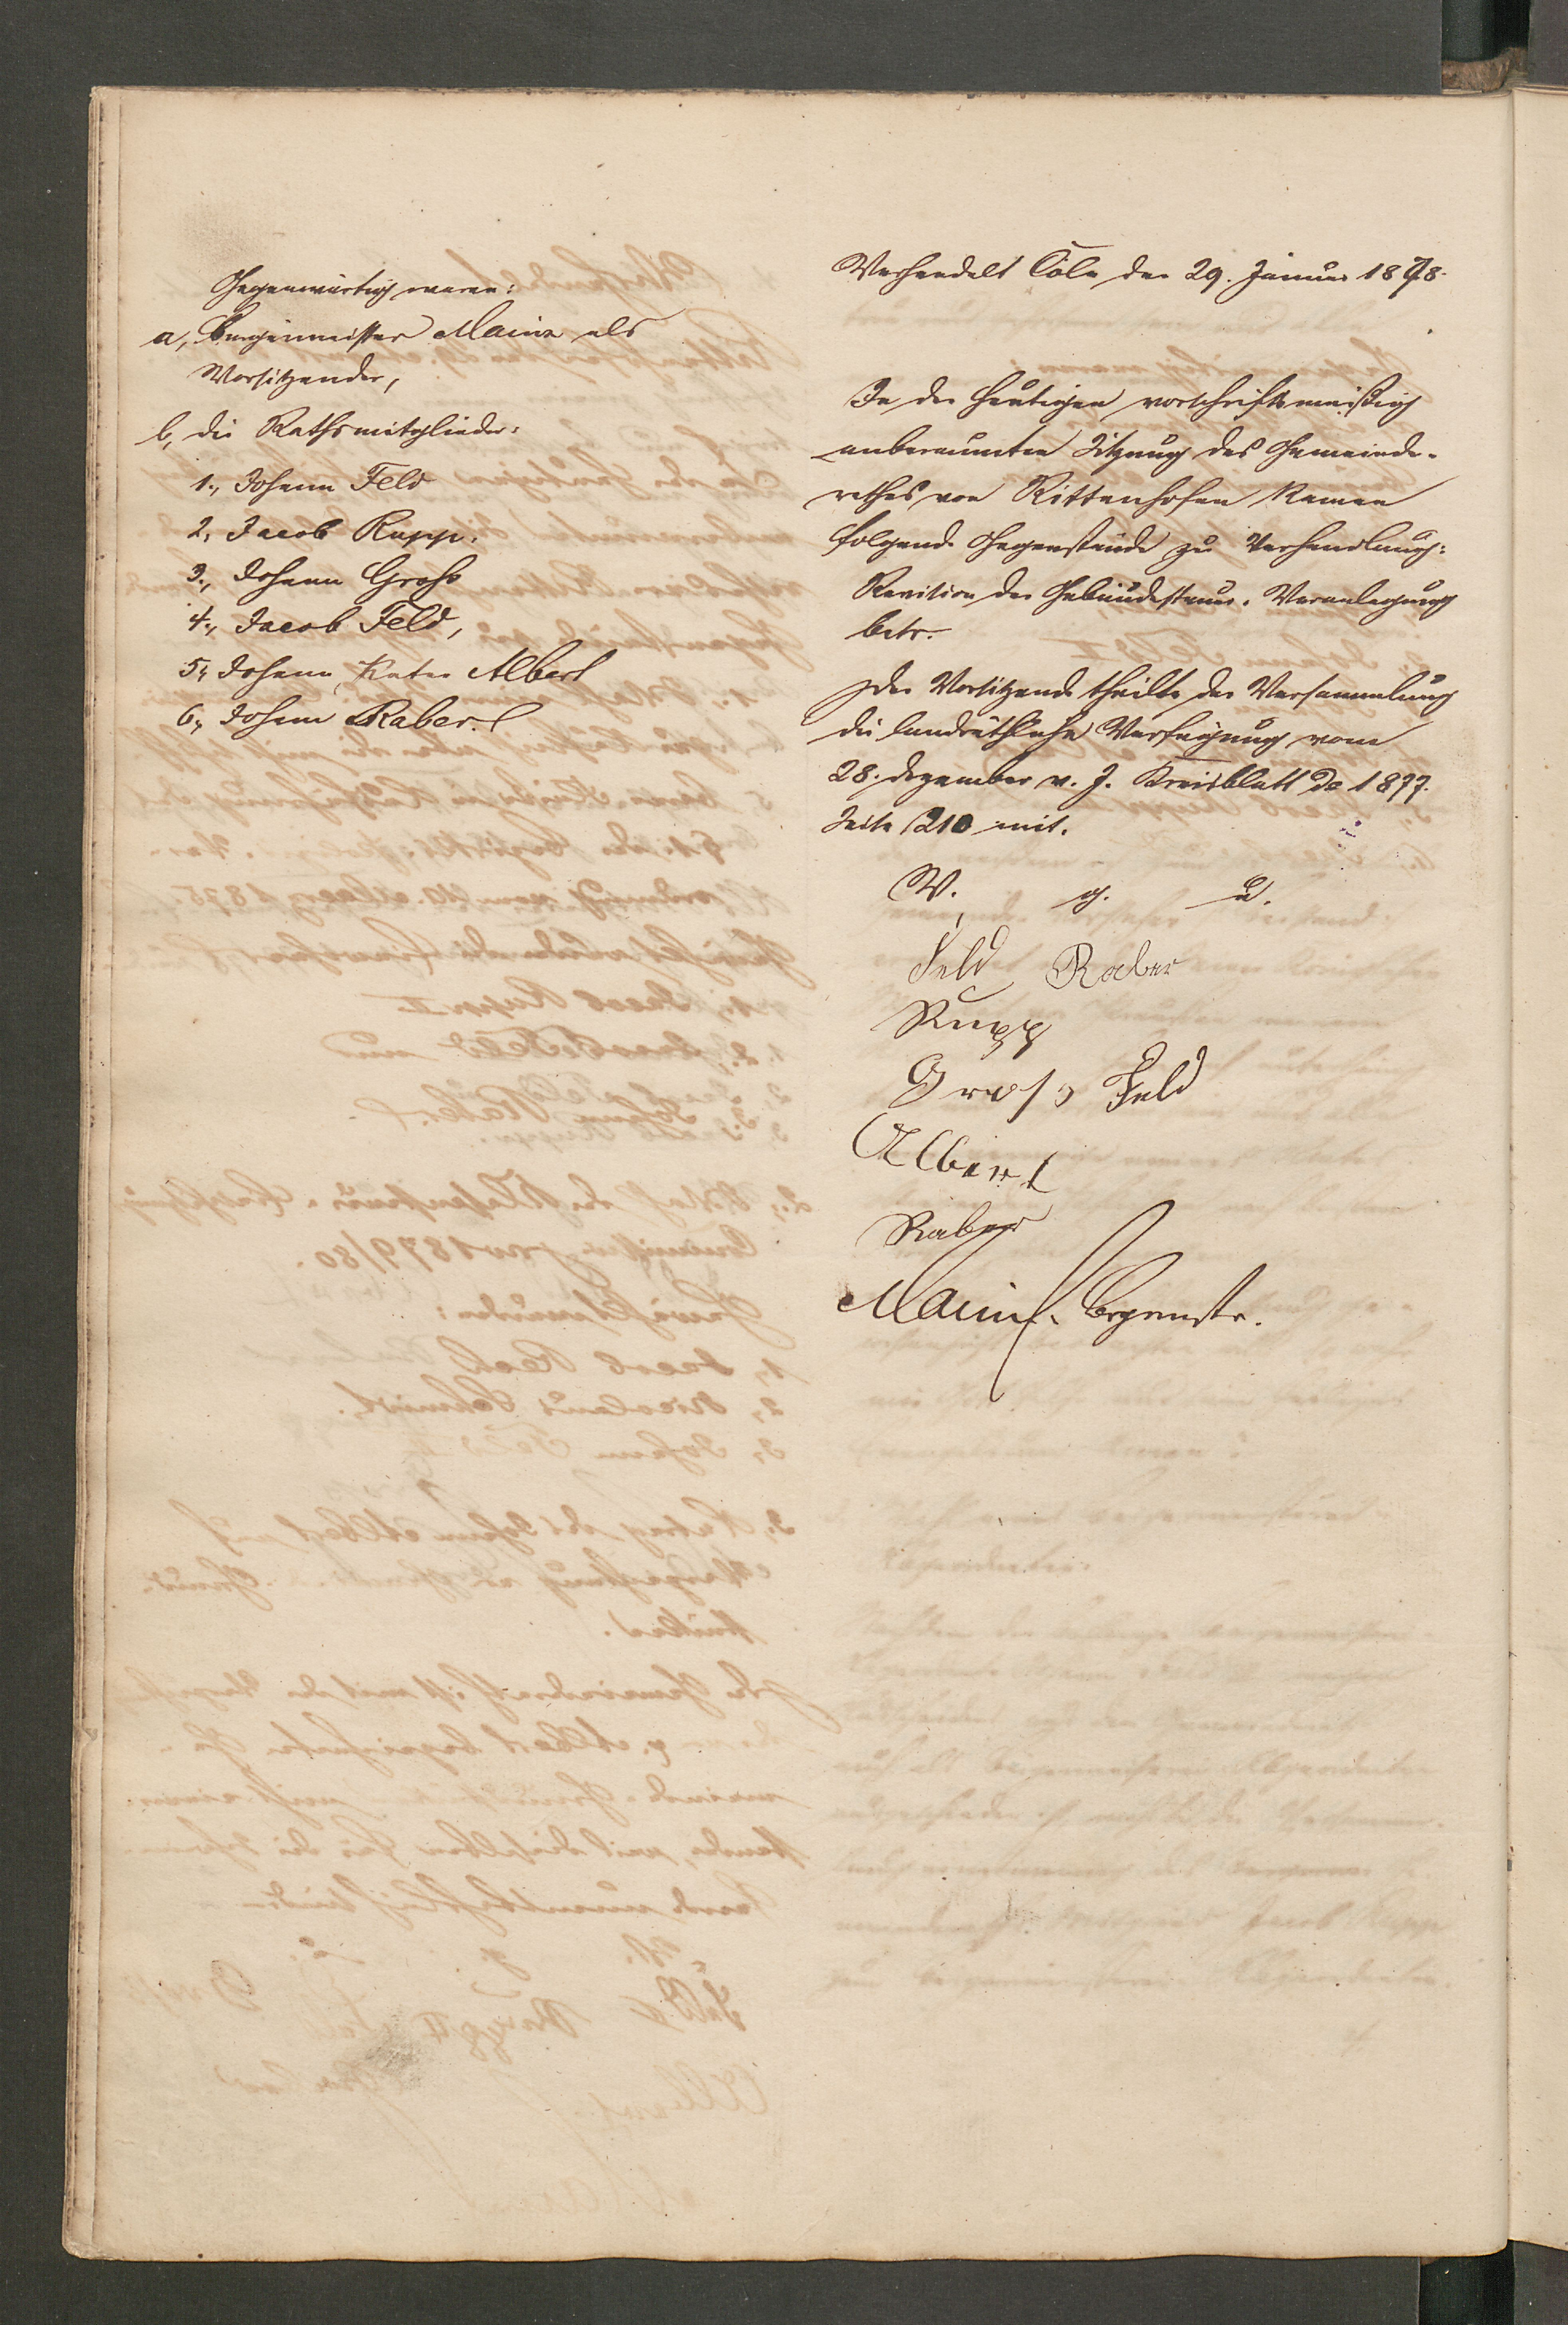 Gegenwärtig waren:
a, Bürgermeister Mainz als
Vorsitzender,
b, die Rathsmitglieder:
1., Johann Feld
2, Jacob Rupp.
3., Johann Groß
4., Jacob Feld,
5, Johann Peter Albert
6., Johann Raber.
Verhandelt Cöln den 29. Januar 1878.
In der heutigen vorschriftsmäßig
anberaumten Sitzung des Gemeinde-
rathes von Rittenhofen kamen
folgende Gegenstände zu Verhandlung:
Revision der Gebäudesteuer-Veranlagung
betr.
Der Vorsitzende theilte der Versammlung
die landräthliche Verfügung vom
28. Dezember v. J. Kreisblatt de 1877.
Seite 210 mit.
V. g. u.
Feld Raber
Rupp
Gross Feld
Albert
Raber
Mainz. Bgrmstr.